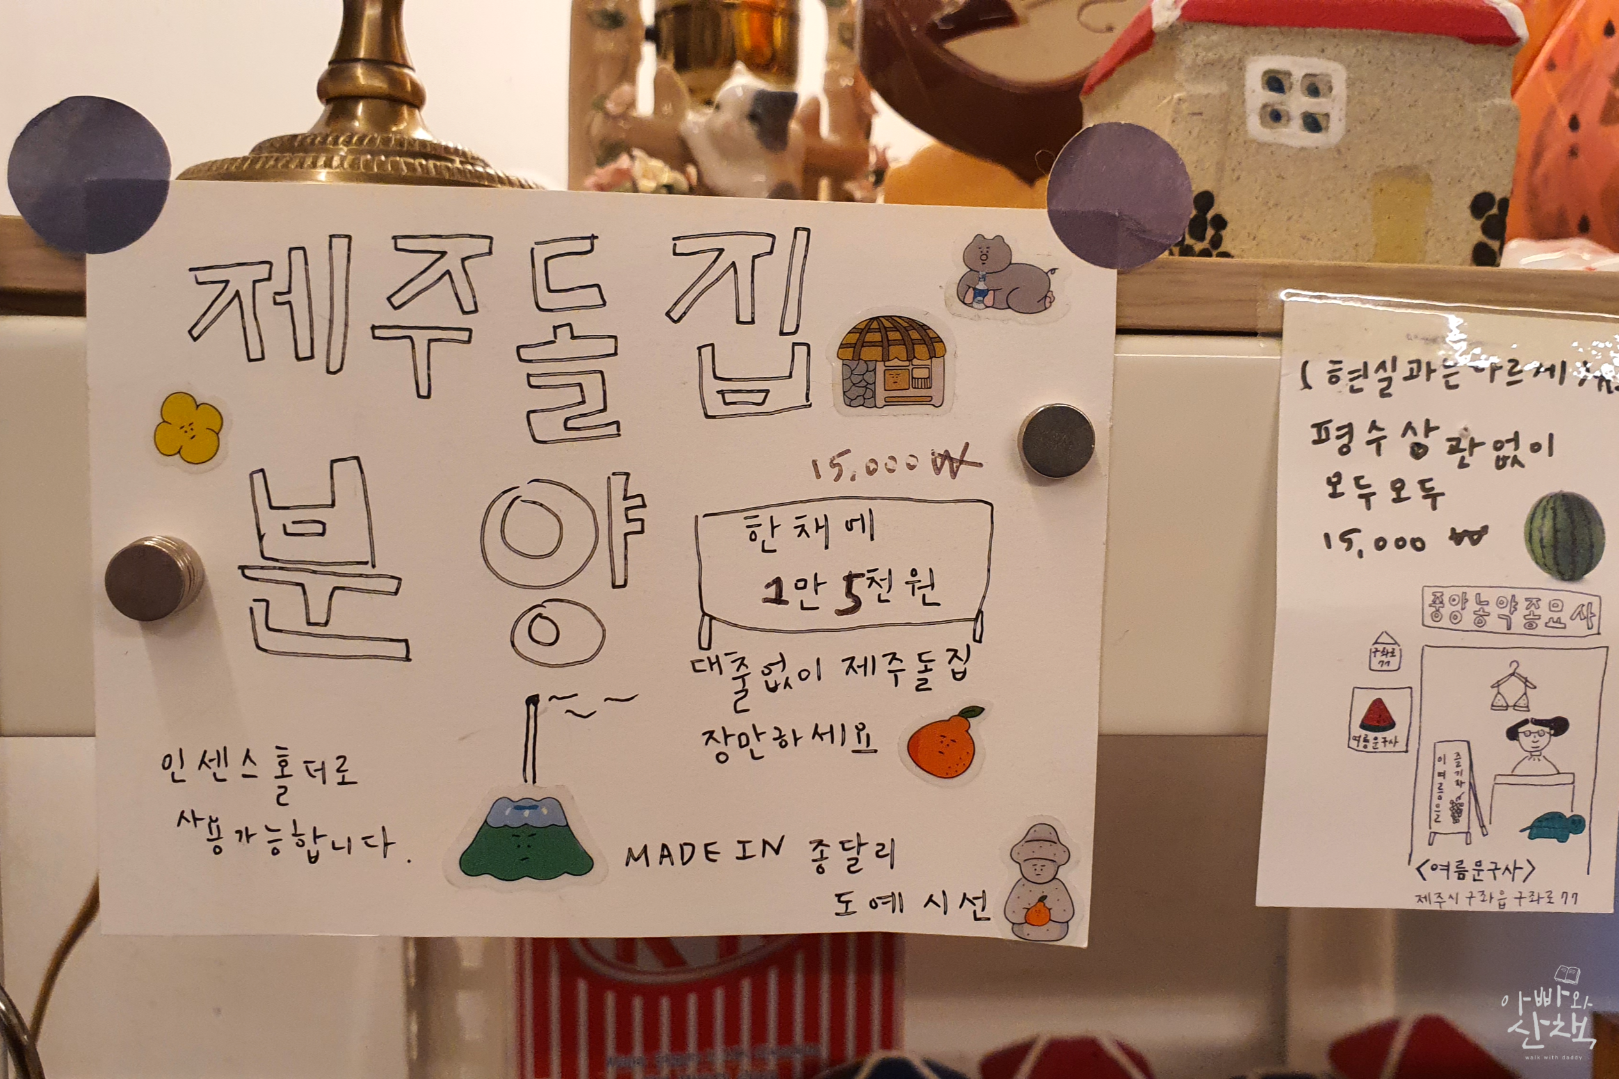 제주돌집
분양
15,000₩
한채에
1만 5천원
대출없이 제주돌집
장만하세요
인센스홀더로
사용가능합니다.
MADE IN 종달리
도예시선
현실과는 다르게
평수상관없이
모두모두
15,000 ₩
중앙농약종묘사
구좌로
77
여름문구사
<여름문구사>
제주시 구좌읍 구좌로 77
아빠와
산책
walk with daddy